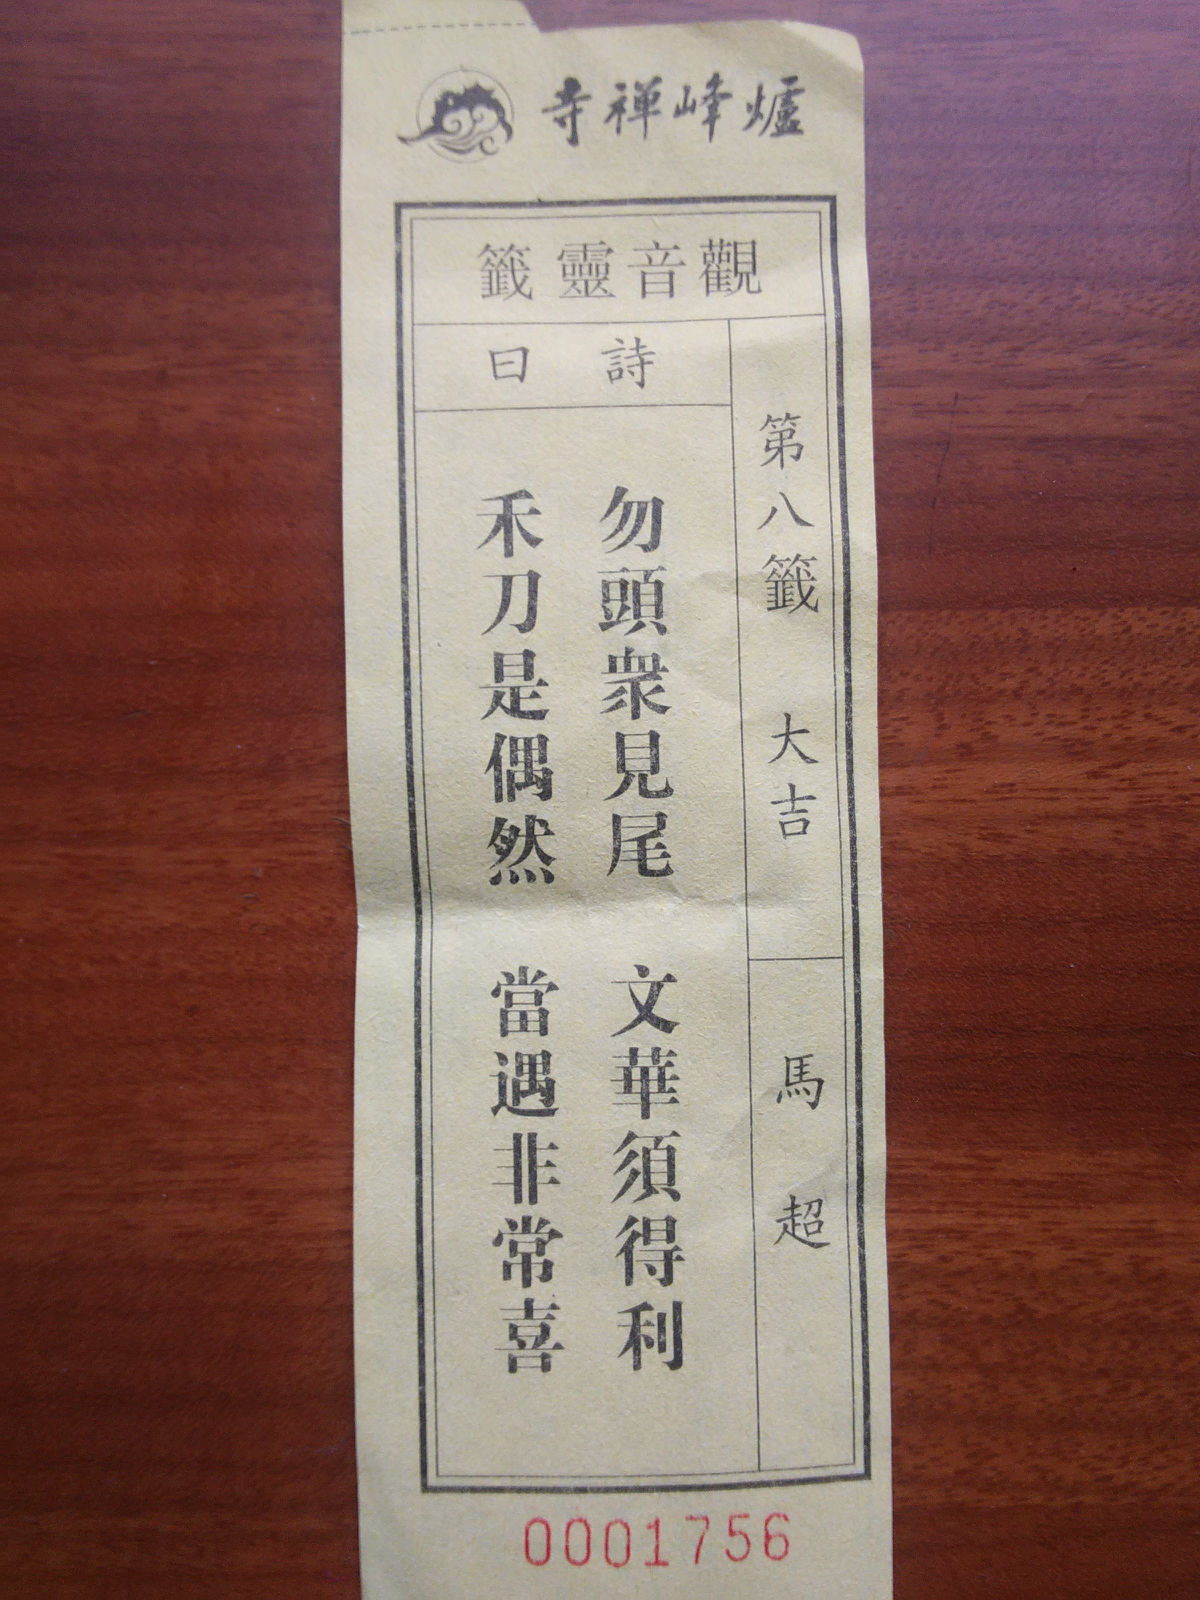 爐峰禅寺
觀音靈籤
第八籤 大吉
馬超
詩曰
勿頭衆見尾 文華須得利
禾刀是偶然 當遇非常喜
0001756